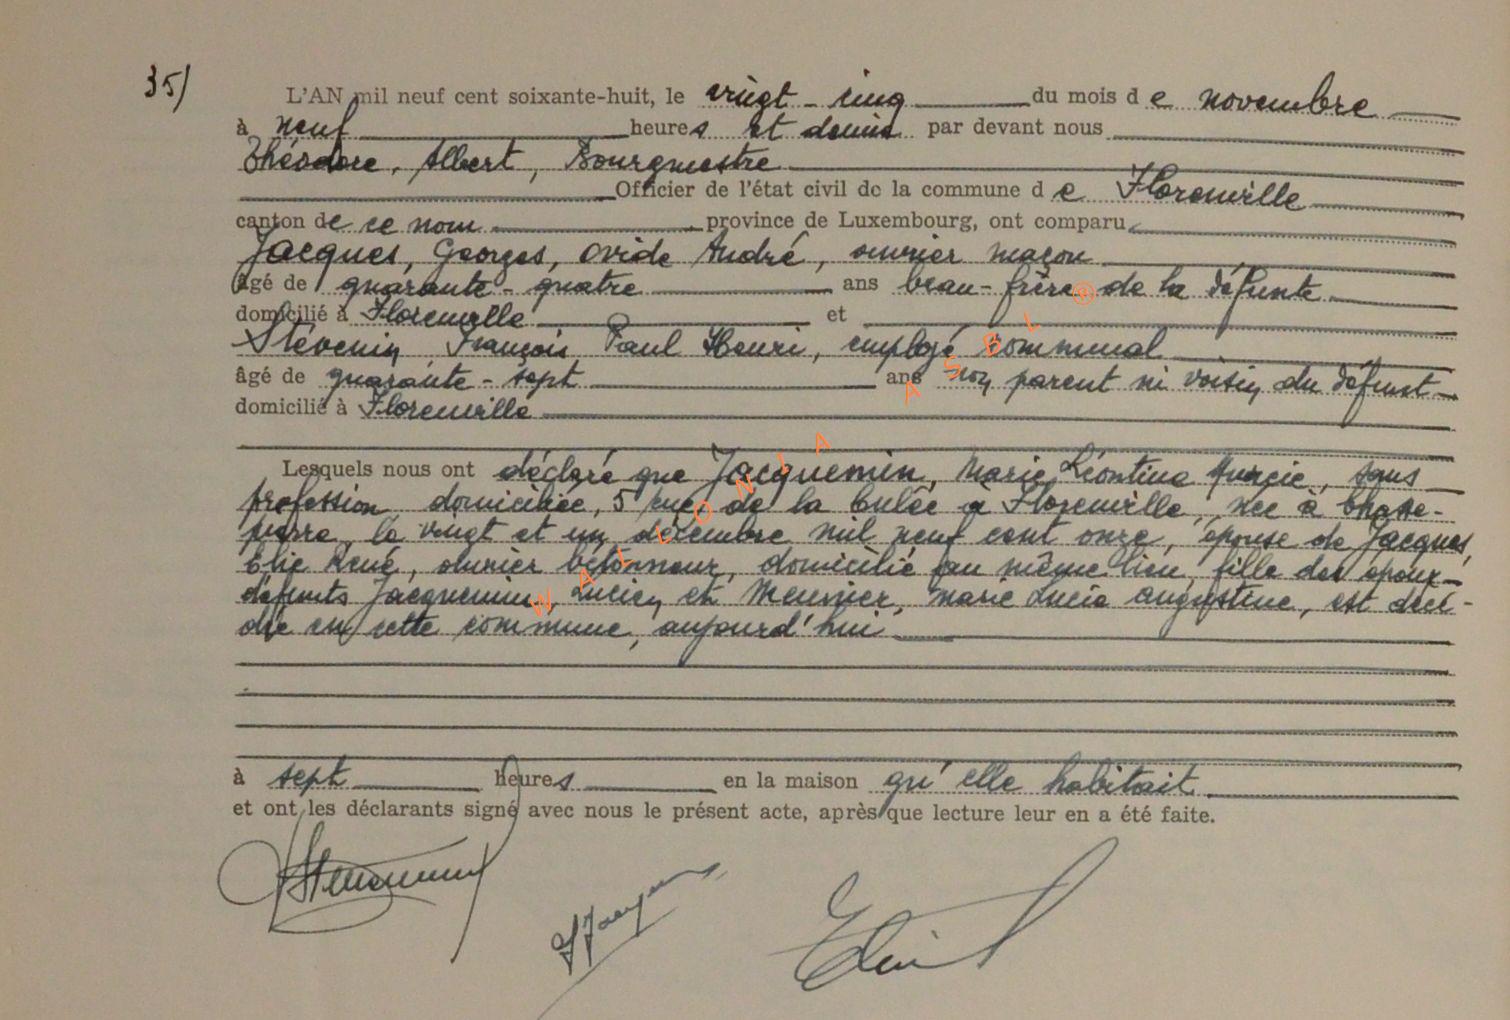 35/
L'AN mil neuf cent soixante-huit, le vingt-cinq du mois de novembre
à neuf heures et demie par devant nous
Théodore, Albert, Bourgmestre
Officier de l'état civil de la commune de Florenville
canton de ce nom province de Luxembourg, ont comparu
Jacques, Georges, Ovide André, ouvrier maçon
âgé de quarante-quatre ans beau-frère de la défunte
domicilié à Florenville et
Stévenin, François, Paul Henri, employé communal
âgé de quarante-sept ans non parent ni voisin du défunt
domicilié à Florenville
Lesquels nous ont déclaré que Jacquemin, Marie Léontine, sans
profession, domiciliée, 5 rue de la Culée à Florenville, née à Chasse-
pierre, le vingt et un décembre mil neuf cent onze, épouse de Jacques,
Elie René, ouvrier bétonneur, domicilié au même lieu, fille des époux
défunts Jacquemin, Lucien et Meunier, Marie Lucie Augustine, est décé-
dée en cette commune, aujourd'hui
à sept heures en la maison qu'elle habitait
et ont les déclarants signé avec nous le présent acte, après que lecture leur en a été faite.
WALLONIA ASBL ®